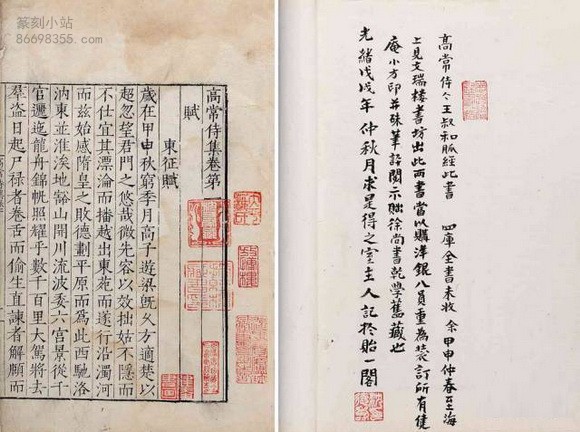 篆刻小站
86698355.com
高常侍集卷第
賦
東征賦
歲在甲申秋窮季月高子遊梁旣久方適楚以
超忽望君門之悠哉微先容以效拙姑不隱而
不仕宜其漂淪而播越出東苑而遂行沿濁河
而茲始感隋皇之敗德劃平原而為此西馳洛
汭東並淮涘地豁山開川流波委六宮景從千
官邐迤龍舟錦帆照耀乎數千百里大駕將去
羣盜日起尸祿者卷舌而偷生直諫者解頤而
高常侍仝王叔和脈經此書 四庫全書未收 余甲申仲春至上海
上見文瑞樓書坊出此两書當以購洋銀八員重為裝訂所有健
庵小方印并硃筆註閱示貽徐尚書乾學舊藏也
光緒戊戌年仲秋月求是得之室主人記於貽一閣